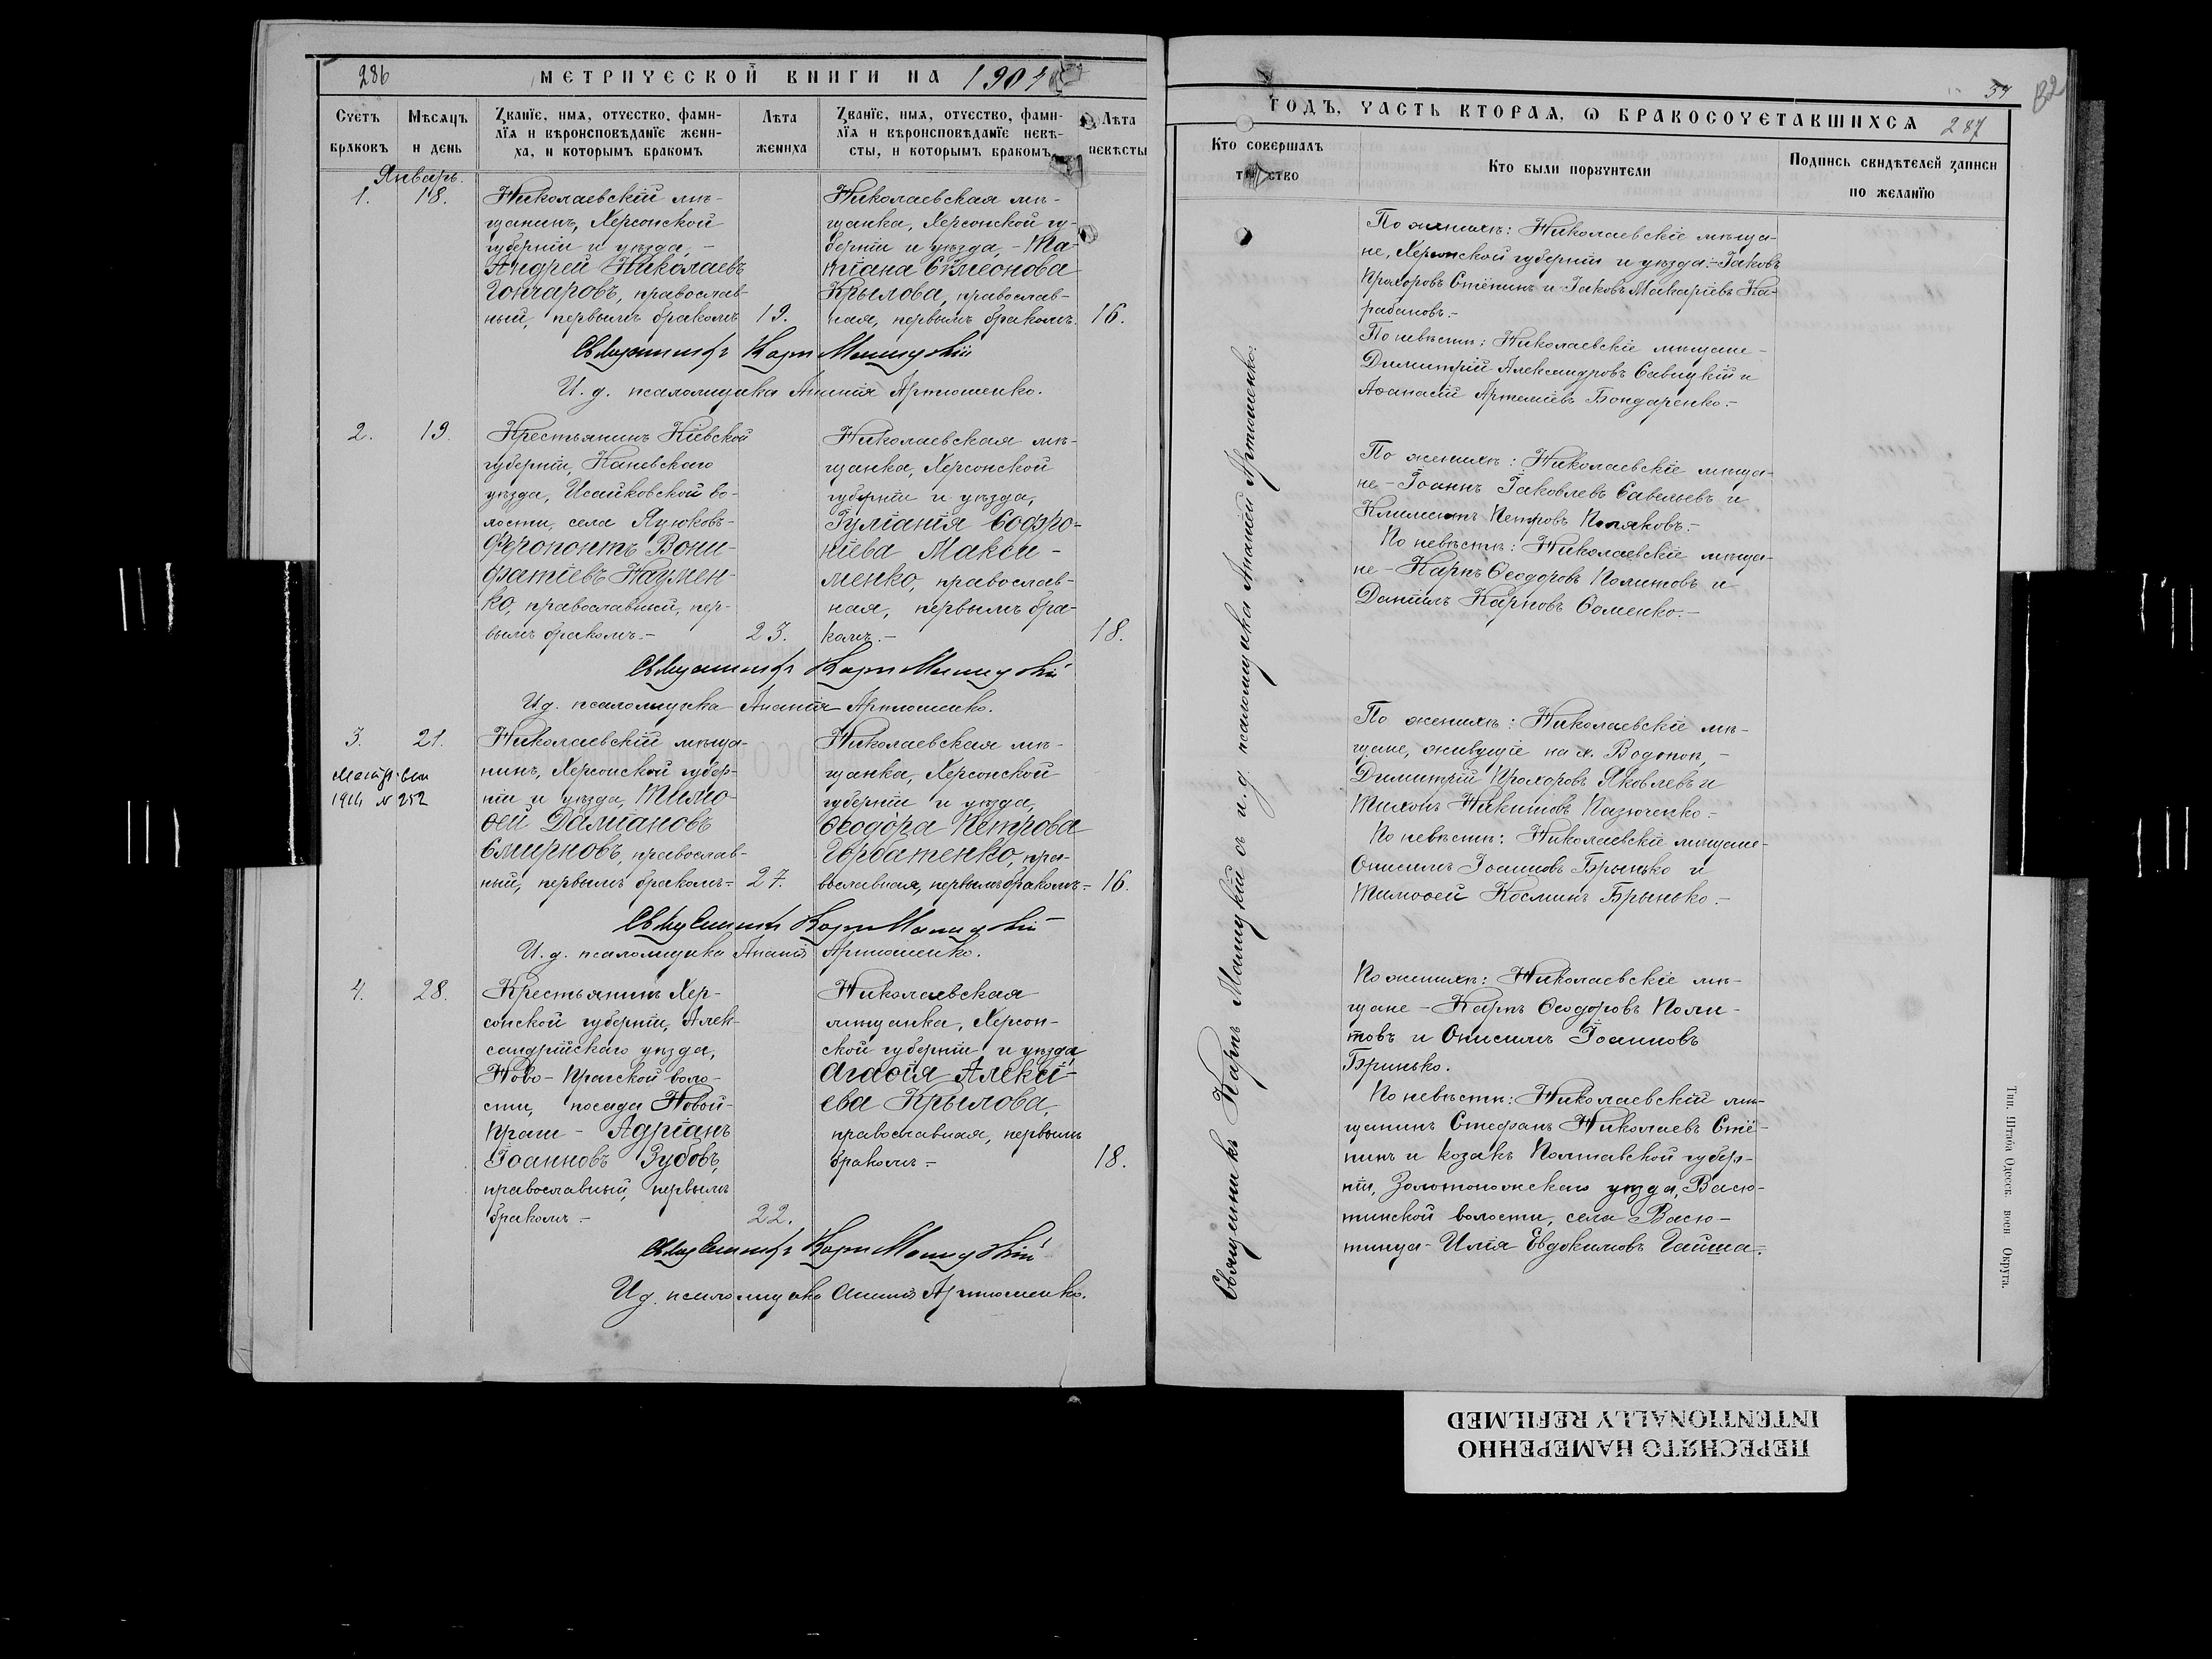 286
МЕТРИЧЕСКОЙ КНИГИ НА 1907
Счетъ браковъ
Мѣсяцъ и день
Званіе, имя, отчество, фамилія и вѣроисповѣданіе жениха, и которымъ бракомъ
Лѣта жениха
Званіе, имя, отчество, фамилія и вѣроисповѣданіе невѣсты, и которымъ бракомъ
Лѣта невѣсты
Январь.
1. 18.
Николаевскій мѣ-
щанинъ, Херсонской
губерніи и уѣзда, -
Андрей Николаевъ
Гончаровъ, православ-
ный, первымъ бракомъ 19.
Николаевская мѣ-
щанка, Херсонской гу-
берніи и уѣзда, - Та-
тіана Симеонова
Крылова, православ-
ная, первымъ бракомъ. 16.
Священникъ Карпъ
И. д. псаломщика Ананія Артюшенко.
2. 19.
Крестьянинъ Кіевской
губерніи, Каневскаго
уѣзда, Исайковской во-
лости, села Яцюковъ-
Ферапонтъ Вони-
фатіевъ Наумен-
ко, православный, пер-
вымъ бракомъ. - 23.
Николаевская мѣ-
щанка, Херсонской
губерніи и уѣзда,
Іуліанія Софро-
ніева Макси-
менко, православ-
ная, первымъ бра-
комъ. - 18.
Священникъ Карпъ
И д. псаломщика Ананія Артюшенко.
3. 21.
1914 N 252
Николаевскій мѣща-
нинъ, Херсонской губер-
ніи и уѣзда, Тимо-
ѳей Даміановъ
Смирновъ, православ-
ный, первымъ бракомъ - 27.
Николаевская мѣ-
щанка, Херсонской
губерніи и уѣзда,
Ѳеодора Петрова
Горбатенко, пра-
вославная, первымъ бракомъ. - 16.
Священникъ Карпъ
И. д. псаломщика Ананія Артюшенко.
4. 28.
Крестьянинъ Хер-
сонской губерніи, Алек-
сандрійскаго уѣзда,
Ново-Прагской воло-
сти, посада Новой-
Праги - Адріанъ
Іоанновъ Зубовъ,
православный, первымъ
бракомъ. - 22.
Николаевская
мѣщанка, Херсон-
ской губерніи и уѣзда
Агаѳія Алексі-
ева Крылова,
православная, первымъ
бракомъ - 18.
Священникъ Карпъ
И д. псаломщика Ананія Артюшенко.
57
82
ГОДЪ, ЧАСТЬ ВТОРАЯ, Ѡ БРАКОСОЧЕТАВШИХСЯ 287
Кто совершалъ таинство
Кто были поручители
Подпись свидѣтелей записи по желанію
Священникъ Карпъ Машуцкій съ и. д. псаломщика Ананіей Артюшенко.
По женихѣ: Николаевскіе мѣща-
не, Херсонской губерніи и уѣзда. - Іаковъ
Прохоровъ Стёпинъ и Іаковъ Макаріевъ Ка-
рабановъ. -
По невѣстѣ: Николаевскіе мѣщане -
Димитрій Александровъ Савицкій и
Аѳанасій Артеміевъ Бондаренко. -
По женихѣ: Николаевскіе мѣща-
не - Іоаннъ Іаковлевъ Савельевъ и
Климентъ Петровъ Поляковъ. -
По невѣстѣ: Николаевскіе мѣща-
не - Карпъ Ѳеодоровъ Политовъ и
Даніилъ Карповъ Соменко. -
По женихѣ: Николаевскіе мѣ-
щане, живущіе на х. Водопоѣ, -
Димитрій Прохоровъ Яковлевъ и
Тихонъ Никитовъ Пазюченко. -
По невѣстѣ: Николаевскіе мѣщане -
Онисимъ Іоанновъ Брынько и
Тимоѳей Косминъ Брынько. -
По женихѣ: Николаевскіе мѣ-
щане - Карпъ Ѳеодоровъ Поли-
товъ и Онисимъ Іоанновъ
Бринько.
По невѣстѣ: Николаевскій мѣ-
щанинъ Стефанъ Николаевъ Стё-
пинъ и козакъ Полтавской губер-
ніи, Золотоношскаго уѣзда, Васю-
тинской волости, села Васю-
тинца - Илія Евдокимовъ Гайша. -
Тип. Штаба Одесск. воен Округа.
ПЕРЕСНЯТО НАМЕРЕННО
INTENTIONALLY REFILMED